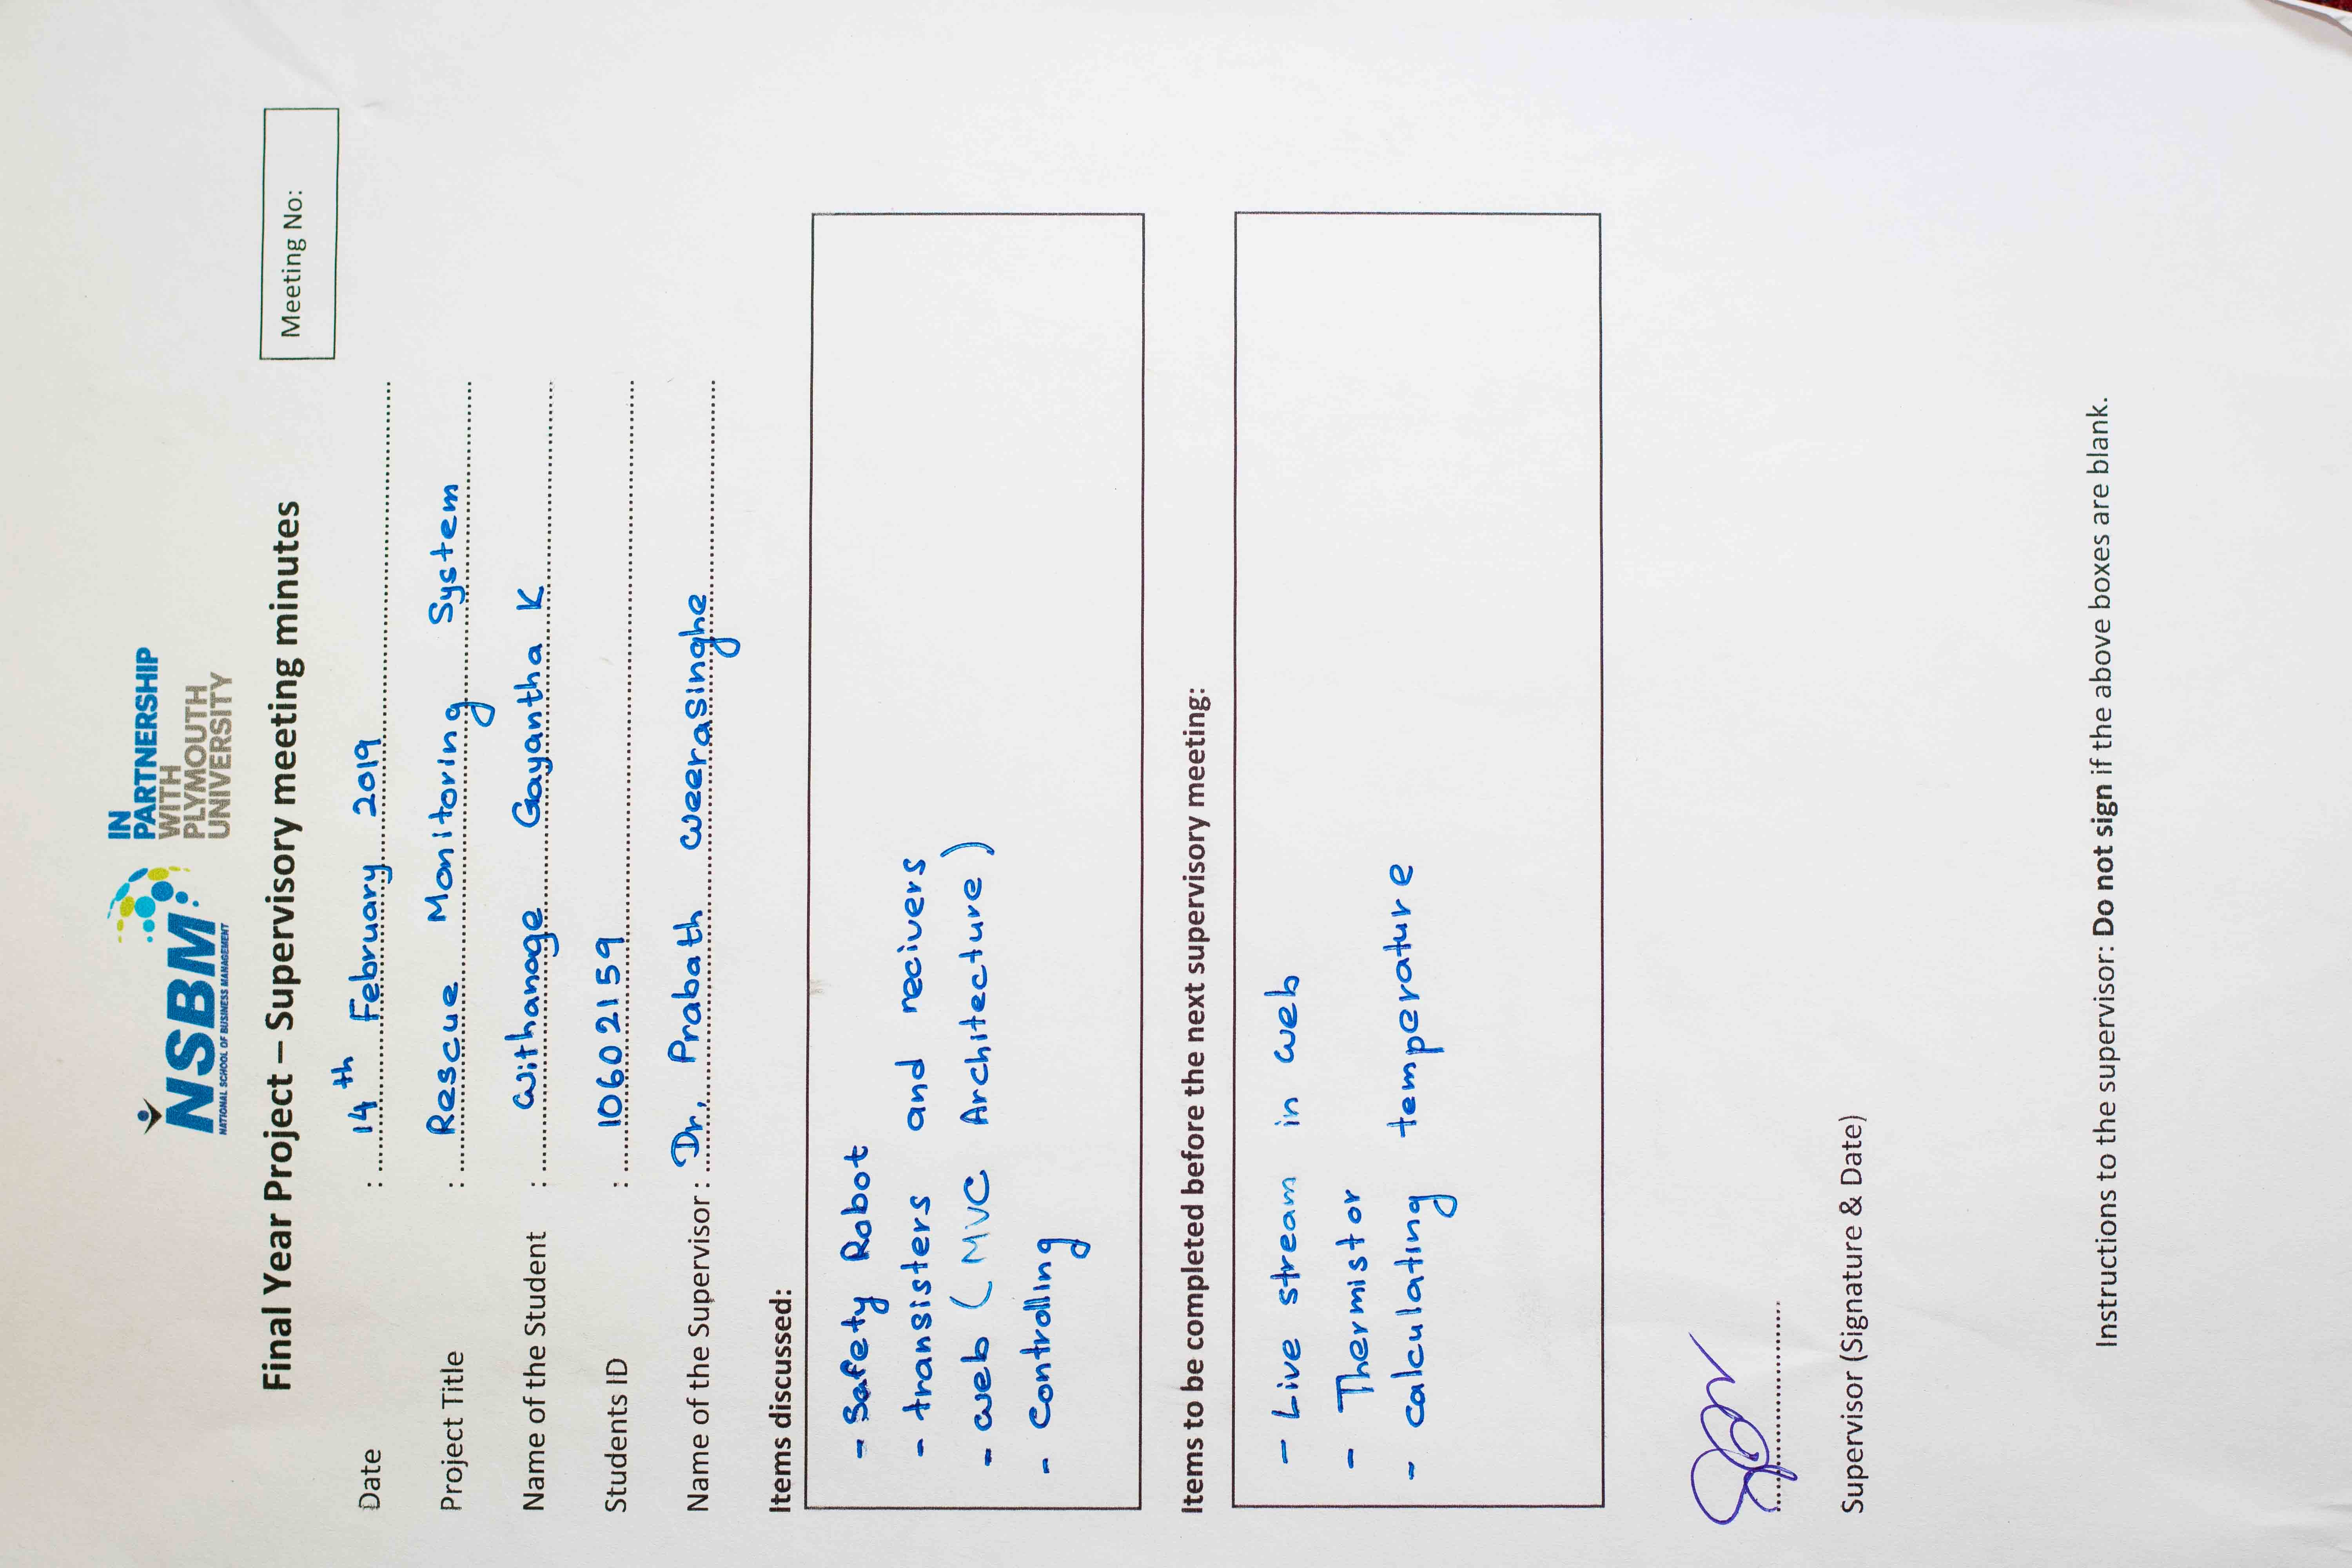 NSBM
NATIONAL SCHOOL OF BUSINESS MANAGEMENT
IN
PARTNERSHIP
WITH
PLYMOUTH
UNIVERSITY
Final Year Project – Supervisory meeting minutes
Meeting No:
Date : 14th February 2019
Project Title : Rescue Monitoring System
Name of the Student : Withanage Gayantha K
Students ID : 10602159
Name of the Supervisor : Dr. Prabath weerasinghe
Items discussed:
- Safety Robot
- transisters and recivers
- web (MVC Architecture)
- Controlling
Items to be completed before the next supervisory meeting:
- Live stream in web
- Thermistor
- calculating temperature
Supervisor (Signature & Date)
Instructions to the supervisor: Do not sign if the above boxes are blank.